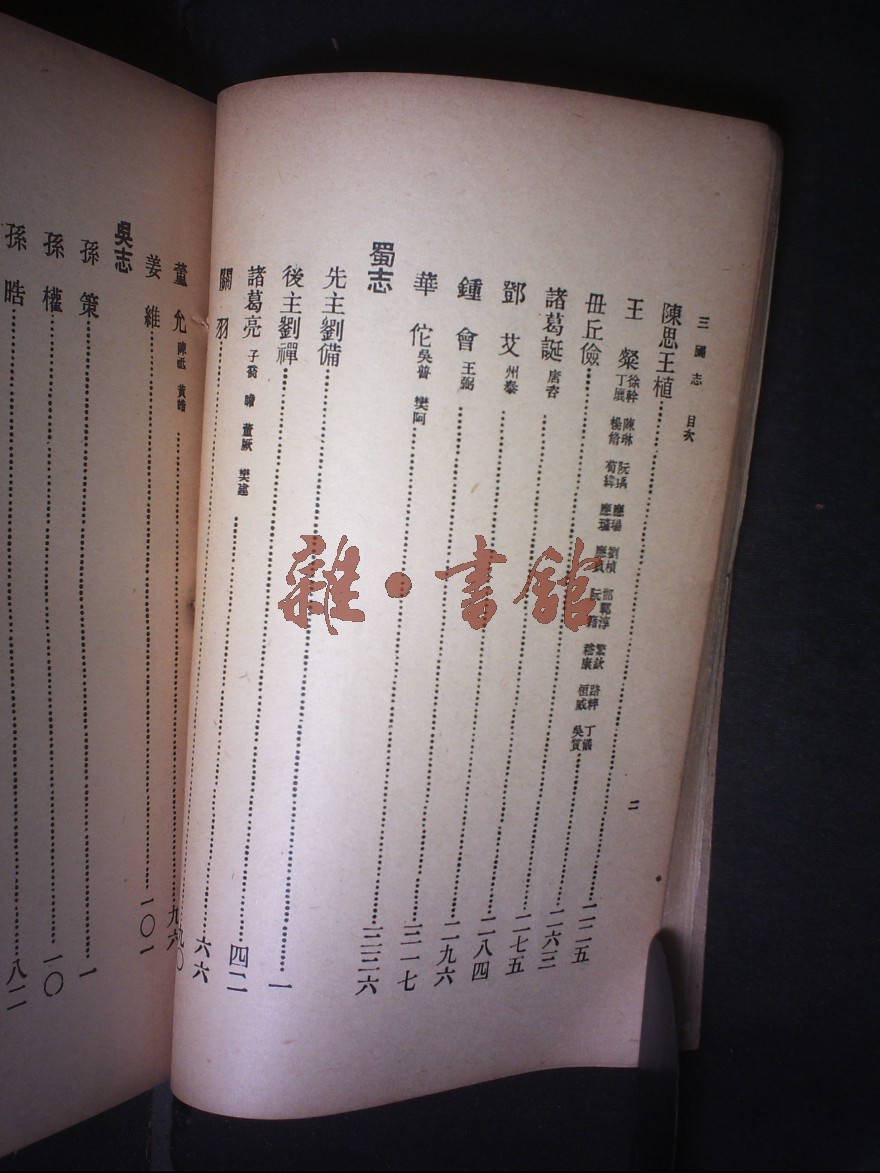 三國志 目次 二
陳思王植……二二五
王粲 徐幹 陳琳 阮瑀 應瑒 劉楨 邯鄲淳 繁欽 路粹 丁儀
丁廙 楊脩 荀緯 應璩 應貞 阮籍 嵇康 桓威 吳質……二六三
毌丘儉……二七五
諸葛誕 唐咨……二八四
鄧艾 州泰……二九六
鍾會 王弼……三一七
華佗 吳普 樊阿……三三六
蜀志
先主劉備……一
後主劉禪……四二
諸葛亮 子喬 瞻 董厥 樊建……六六
關羽……九〇
董允 陳祗 黃皓……九六
姜維……一〇一
吳志
孫策……一
孫權……一〇
孫晧……八二
雜·書館